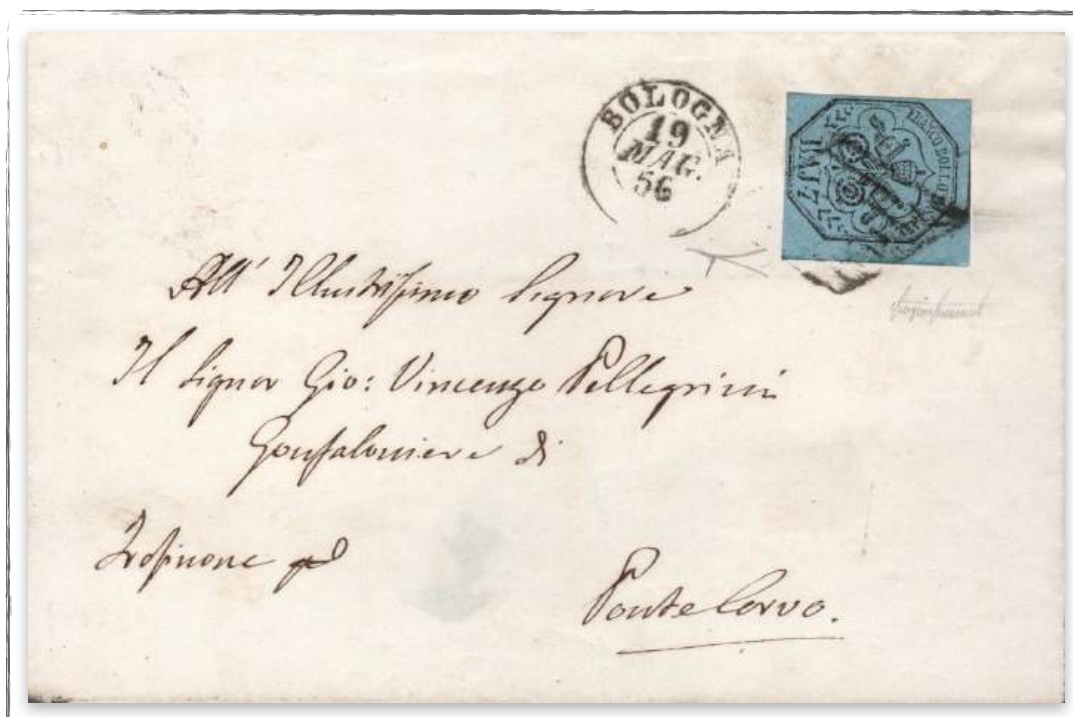 BOLOGNA
19
MAG.
56
FRANCO BOLLO POSTALE
BAJ 7
All' Illustrissimo Signore
Il Signor Gio: Vincenzo Pellegrini
Gonfaloniere di
Frosinone p
Ponte Corvo.